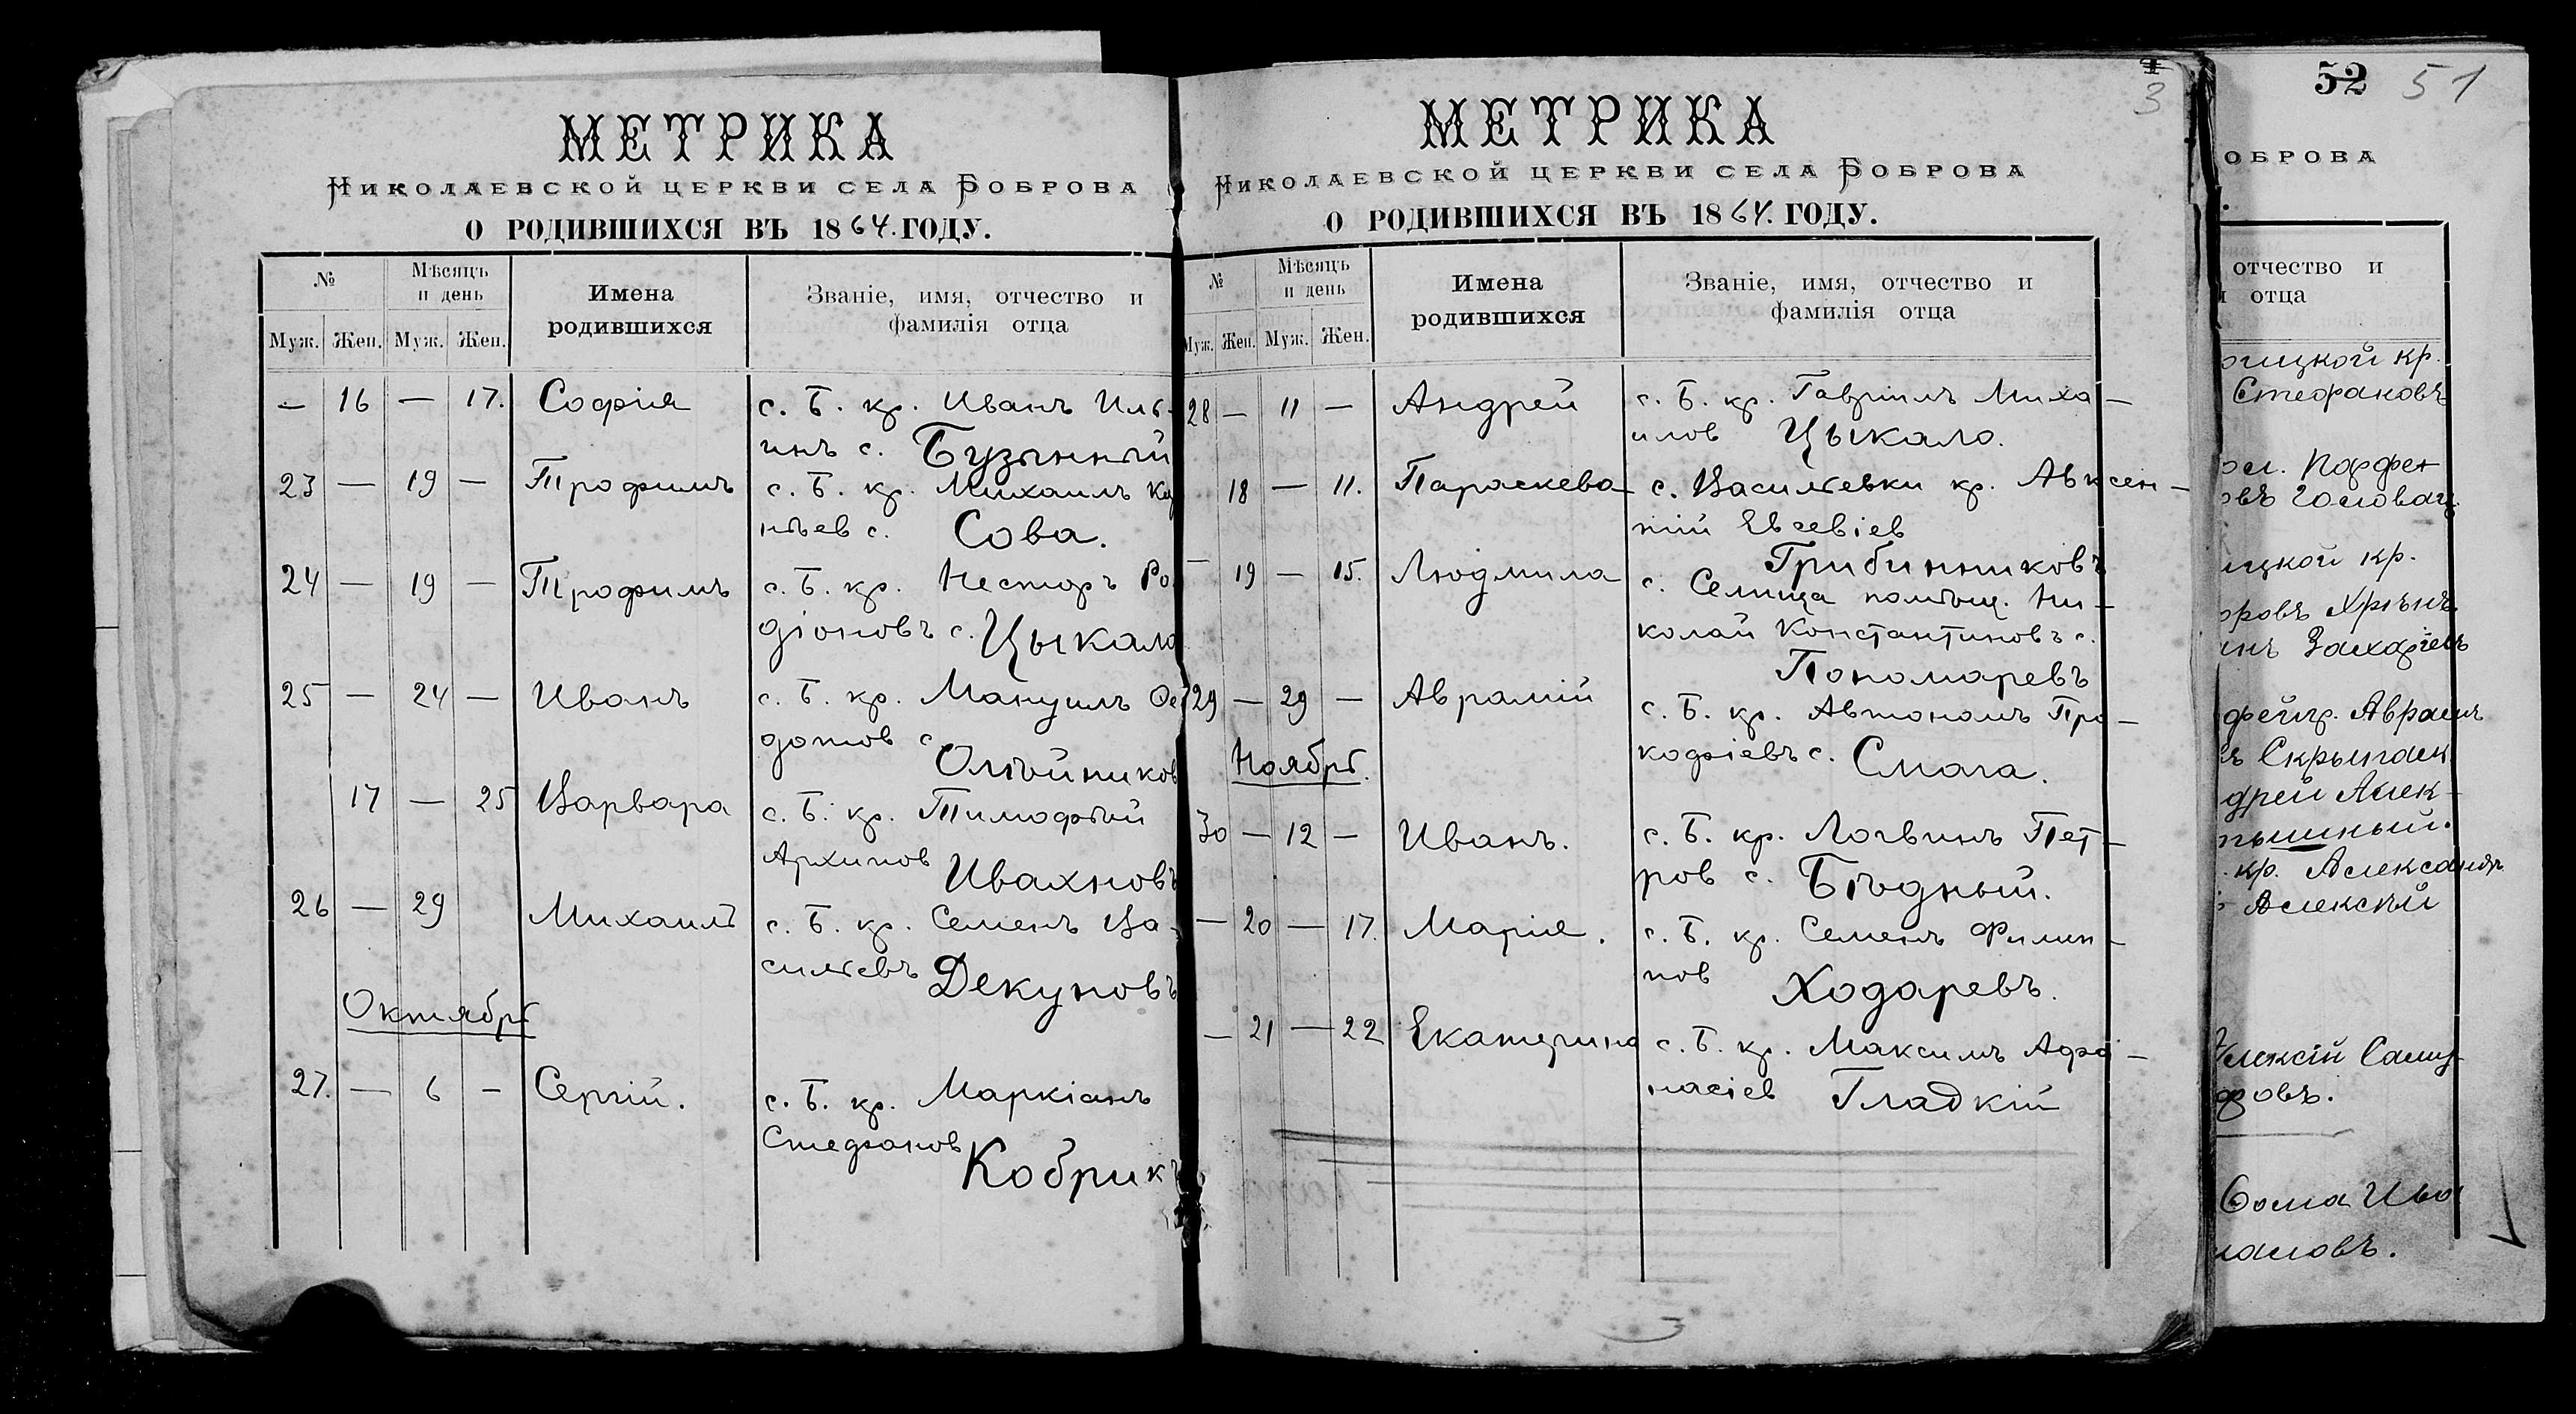 МЕТРИКА
НИКОЛАЕВСКОЙ ЦЕРКВИ СЕЛА БОБРОВА
О РОДИВШИХСЯ ВЪ 1864. ГОДУ.
№
Мѣсяцъ и день
Имена родившихся
Званіе, имя, отчество и фамилія отца
Муж. Жен. Муж. Жен.
— 16 — 17. Софія с. Б. кр. Иванъ Иль-
инъ с. Бузынный
23 — 19 — Трофимъ с. Б. кр. Михаилъ
нѣев с. Сова.
24 — 19 — Трофимъ с. Б. кр. Несторъ Ро
діоновъ с. Цыкало
25 — 24 — Иванъ с. Б. кр. Мануилъ Ѳе
дотов с
Олѣйников
17 — 25 Варвара с. Б. кр. Тимофѣй
Архипов Ивахновъ
26 — 29 Михаилъ с. Б. кр. Семенъ Ва-
сильевъ Декуновъ
Октябрь
27. — 6 — Сергій. с. Б. кр. Маркіанъ
Стефанов
Кобрикъ
3
МЕТРИКА
НИКОЛАЕВСКОЙ ЦЕРКВИ СЕЛА БОБРОВА
О РОДИВШИХСЯ ВЪ 1864. ГОДУ.
№
Мѣсяцъ и день
Имена родившихся
Званіе, имя, отчество и фамилія отца
Муж. Жен. Муж. Жен.
28 — 11 — Андрей с. Б. кр. Гавріилъ Миха-
илов Цыкало.
18 — 11. Параскева с. Васильевки кр. Авксен-
тій Евсевіев
Грибинниковъ
— 19 — 15. Людмила с. Селища помѣщ. Ни-
колай Константиновъ с.
Пономаревъ
29 — 29 — Аврамій с. Б. кр. Автономъ Про-
кофіевъ с. Смага.
Ноябрь.
30 — 12 — Иванъ. с. Б. кр. Логвинъ Пет-
ров с. Бѣдный.
— 20 — 17. Марія. с. Б. кр. Семенъ Филип-
пов Ходаревъ.
— 21 — 22 Екатерина с. Б. кр. Максимъ Афа-
насіев Гладкій
52 51
ОБРОВА
отчество и
отца
ицкой кр.
Стефановъ
Парфен
овъ Головач
ицкой кр.
оровъ
инъ Захаріевъ
Аврамъ
дрей Алек-
кр. Александръ
Алексѣй
Алексій Саму
овъ.
Ѳома Ива